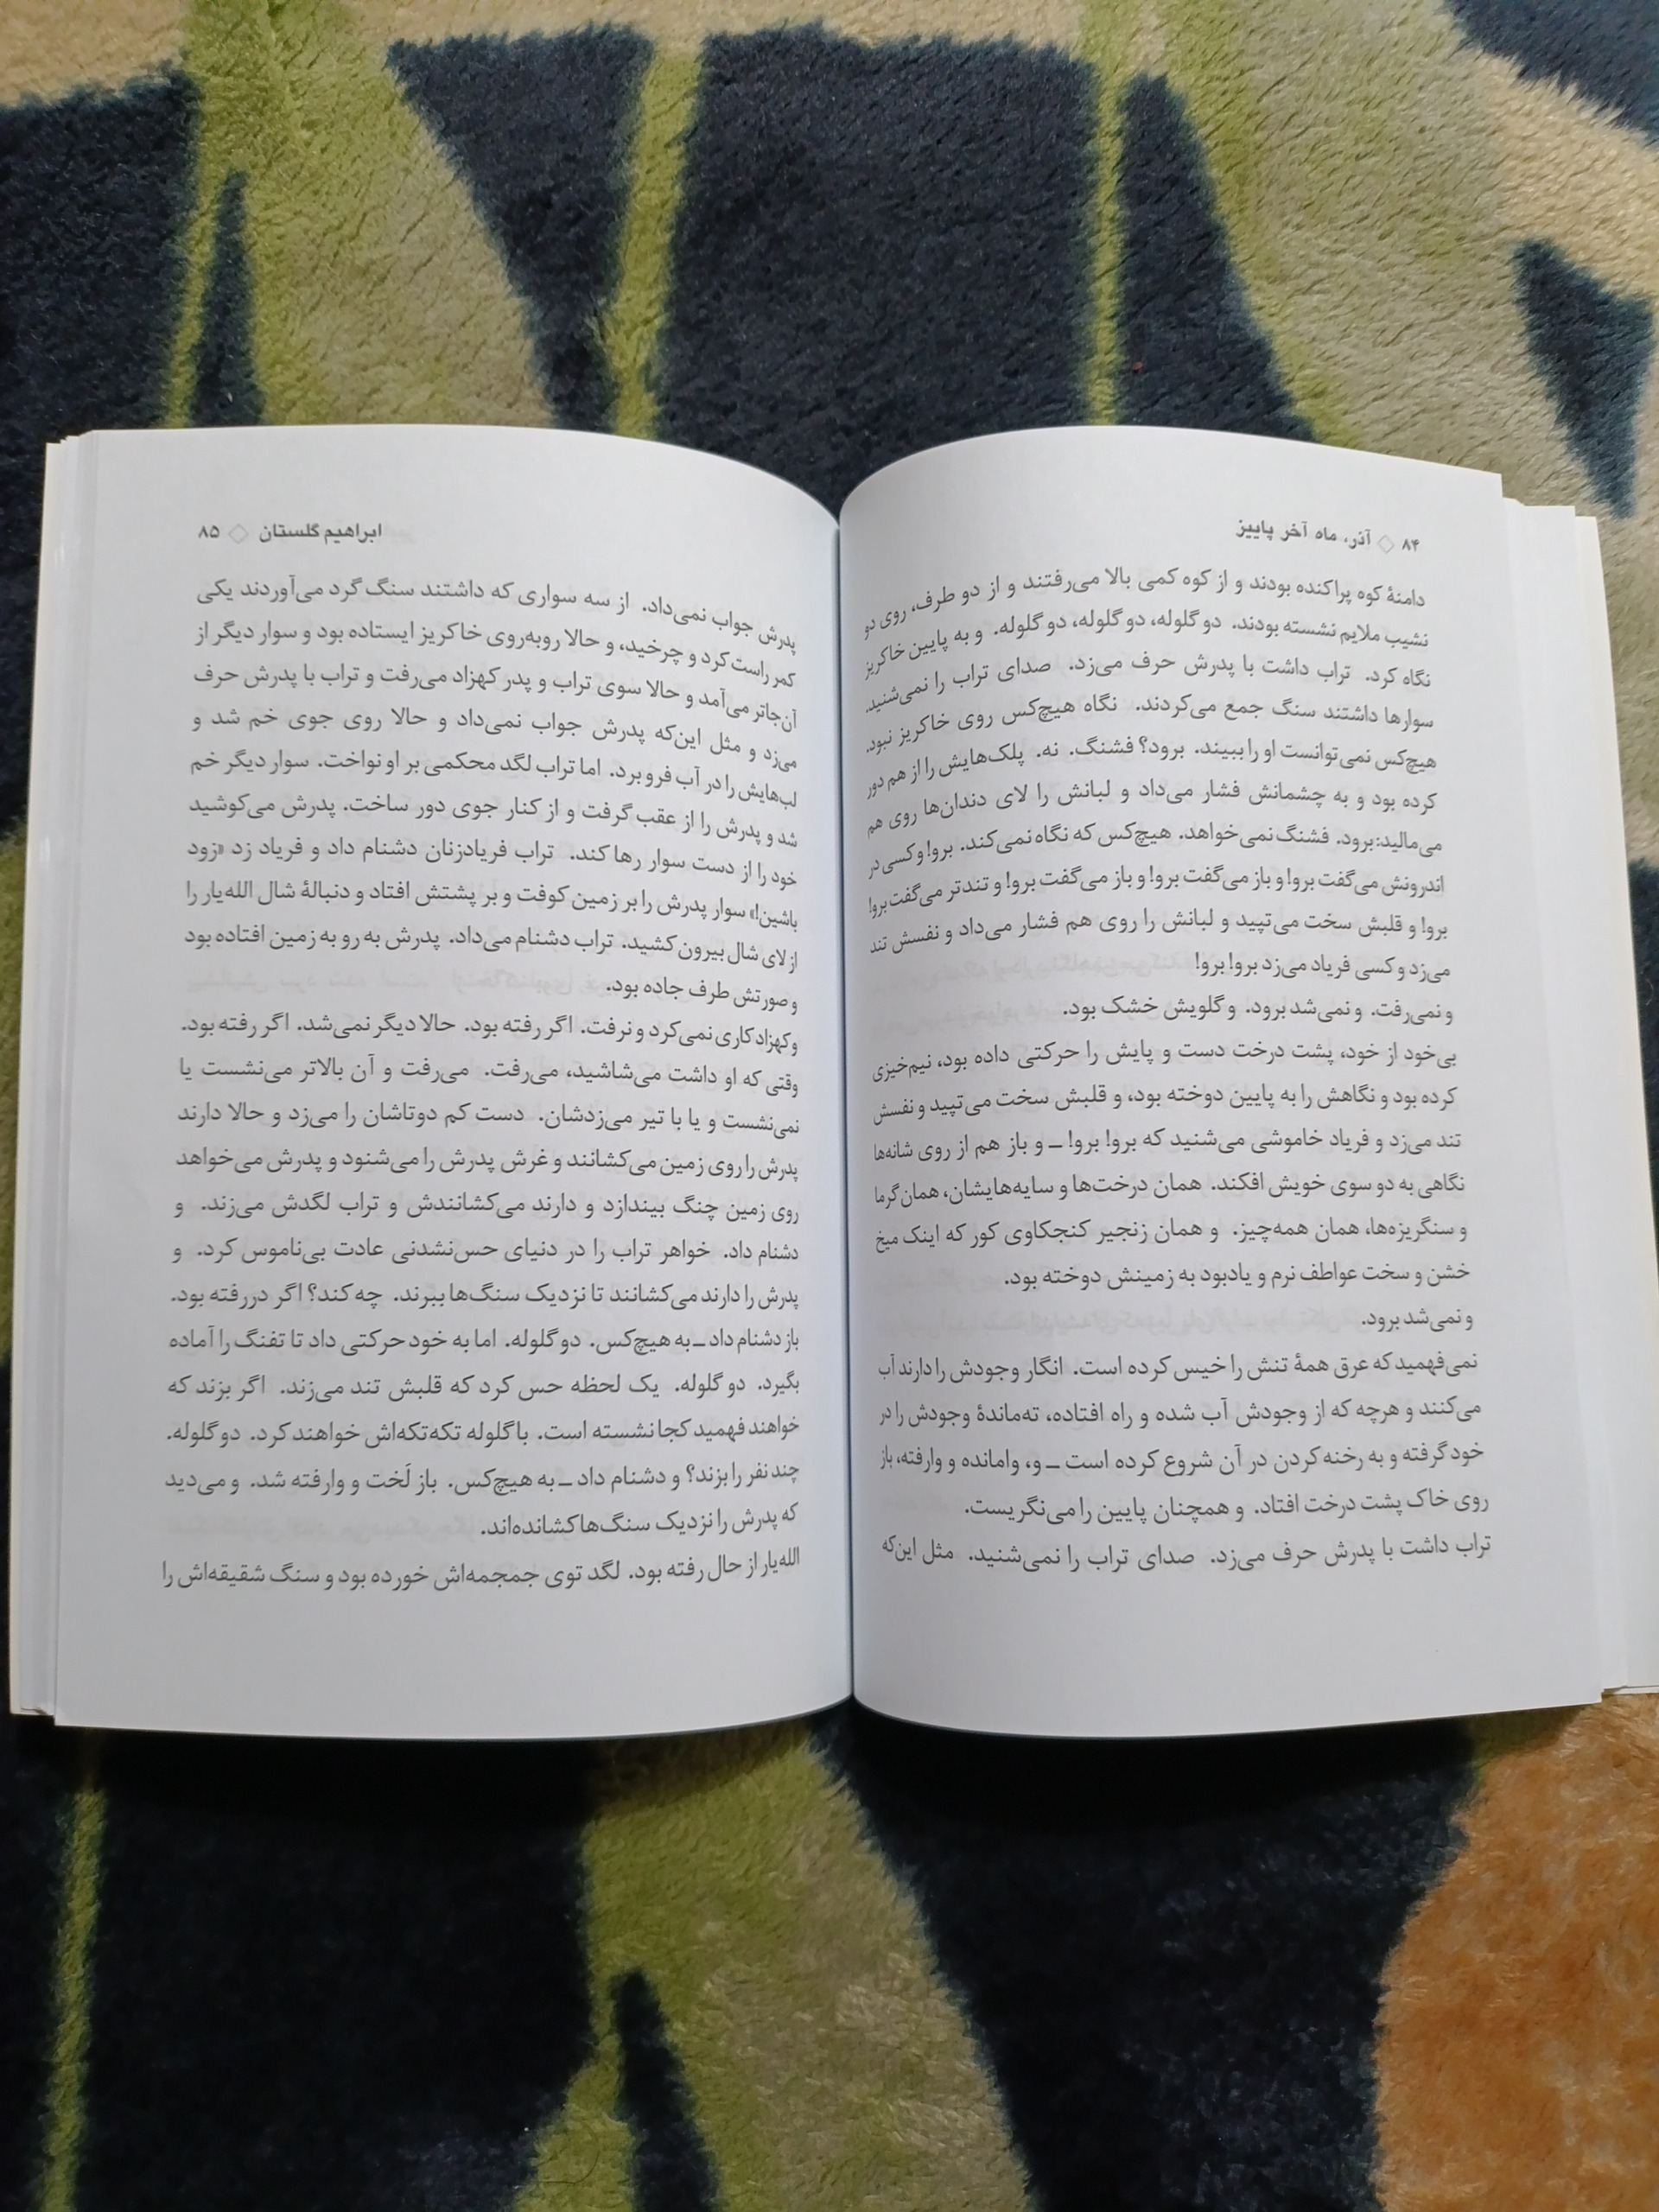 ۸۴ ◇ آذر، ماه آخر پاییز
دامنهٔ کوه پراکنده بودند و از کوه کمی بالا می‌رفتند و از دو طرف، روی دو
نشیب ملایم نشسته بودند. دو گلوله، دو گلوله، دو گلوله. و به پایین خاکریز
نگاه کرد. تراب داشت با پدرش حرف می‌زد. صدای تراب را نمی‌شنید.
سوارها داشتند سنگ جمع می‌کردند. نگاه هیچ‌کس روی خاکریز نبود.
هیچ‌کس نمی‌توانست او را ببیند. برود؟ فشنگ. نه. پلک‌هایش را از هم دور
کرده بود و به چشمانش فشار می‌داد و لبانش را لای دندان‌ها روی هم
می‌مالید: برود. فشنگ نمی‌خواهد. هیچ‌کس که نگاه نمی‌کند. برو! و کسی در
اندرونش می‌گفت برو! و باز می‌گفت برو! و باز می‌گفت برو! و تندتر می‌گفت برو!
برو! و قلبش سخت می‌تپید و لبانش را روی هم فشار می‌داد و نفسش تند
می‌زد و کسی فریاد می‌زد برو! برو!
و نمی‌رفت. و نمی‌شد برود. و گلویش خشک بود.
بی‌خود از خود، پشت درخت دست و پایش را حرکتی داده بود، نیم‌خیزی
کرده بود و نگاهش را به پایین دوخته بود، و قلبش سخت می‌تپید و نفسش
تند می‌زد و فریاد خاموشی می‌شنید که برو! برو! ــ و باز هم از روی شانه‌ها
نگاهی به دو سوی خویش افکند. همان درخت‌ها و سایه‌هایشان، همان گرما
و سنگریزه‌ها، همان همه‌چیز. و همان زنجیر کنجکاوی کور که اینک میخ
خشن و سخت عواطف نرم و یادبود به زمینش دوخته بود.
و نمی‌شد برود.
نمی‌فهمید که عرق همهٔ تنش را خیس کرده است. انگار وجودش را دارند آب
می‌کنند و هرچه که از وجودش آب شده و راه افتاده، ته‌ماندهٔ وجودش را در
خود گرفته و به رخنه کردن در آن شروع کرده است ــ و، وامانده و وارفته، باز
روی خاک پشت درخت افتاد. و همچنان پایین را می‌نگریست.
تراب داشت با پدرش حرف می‌زد. صدای تراب را نمی‌شنید. مثل این‌که
ابراهیم گلستان ◇ ۸۵
پدرش جواب نمی‌داد. از سه سواری که داشتند سنگ گرد می‌آوردند یکی
کمر راست کرد و چرخید، و حالا روبه‌روی خاکریز ایستاده بود و سوار دیگر از
آن‌جاتر می‌آمد و حالا سوی تراب و پدر کهزاد می‌رفت و تراب با پدرش حرف
می‌زد و مثل این‌که پدرش جواب نمی‌داد و حالا روی جوی خم شد و
لب‌هایش را در آب فرو برد. اما تراب لگد محکمی بر او نواخت. سوار دیگر خم
شد و پدرش را از عقب گرفت و از کنار جوی دور ساخت. پدرش می‌کوشید
خود را از دست سوار رها کند. تراب فریادزنان دشنام داد و فریاد زد «زود
باشین!» سوار پدرش را بر زمین کوفت و بر پشتش افتاد و دنبالهٔ شال الله‌یار را
از لای شال بیرون کشید. تراب دشنام می‌داد. پدرش به رو به زمین افتاده بود
و صورتش طرف جاده بود.
و کهزاد کاری نمی‌کرد و نرفت. اگر رفته بود. حالا دیگر نمی‌شد. اگر رفته بود.
وقتی که او داشت می‌شاشید، می‌رفت. می‌رفت و آن بالاتر می‌نشست یا
نمی‌نشست و یا با تیر می‌زدشان. دست کم دوتاشان را می‌زد و حالا دارند
پدرش را روی زمین می‌کشانند و غرش پدرش را می‌شنود و پدرش می‌خواهد
روی زمین چنگ بیندازد و دارند می‌کشانندش و تراب لگدش می‌زند. و
دشنام داد. خواهر تراب را در دنیای حس‌نشدنی عادت بی‌ناموس کرد. و
پدرش را دارند می‌کشانند تا نزدیک سنگ‌ها ببرند. چه کند؟ اگر دررفته بود.
باز دشنام داد ــ به هیچ‌کس. دو گلوله. اما به خود حرکتی داد تا تفنگ را آماده
بگیرد. دو گلوله. یک لحظه حس کرد که قلبش تند می‌زند. اگر بزند که
خواهند فهمید کجا نشسته است. با گلوله تکه‌تکه‌اش خواهند کرد. دو گلوله.
چند نفر را بزند؟ و دشنام داد ــ به هیچ‌کس. باز لَخت و وارفته شد. و می‌دید
که پدرش را نزدیک سنگ‌ها کشانده‌اند.
الله‌یار از حال رفته بود. لگد توی جمجمه‌اش خورده بود و سنگ شقیقه‌اش را